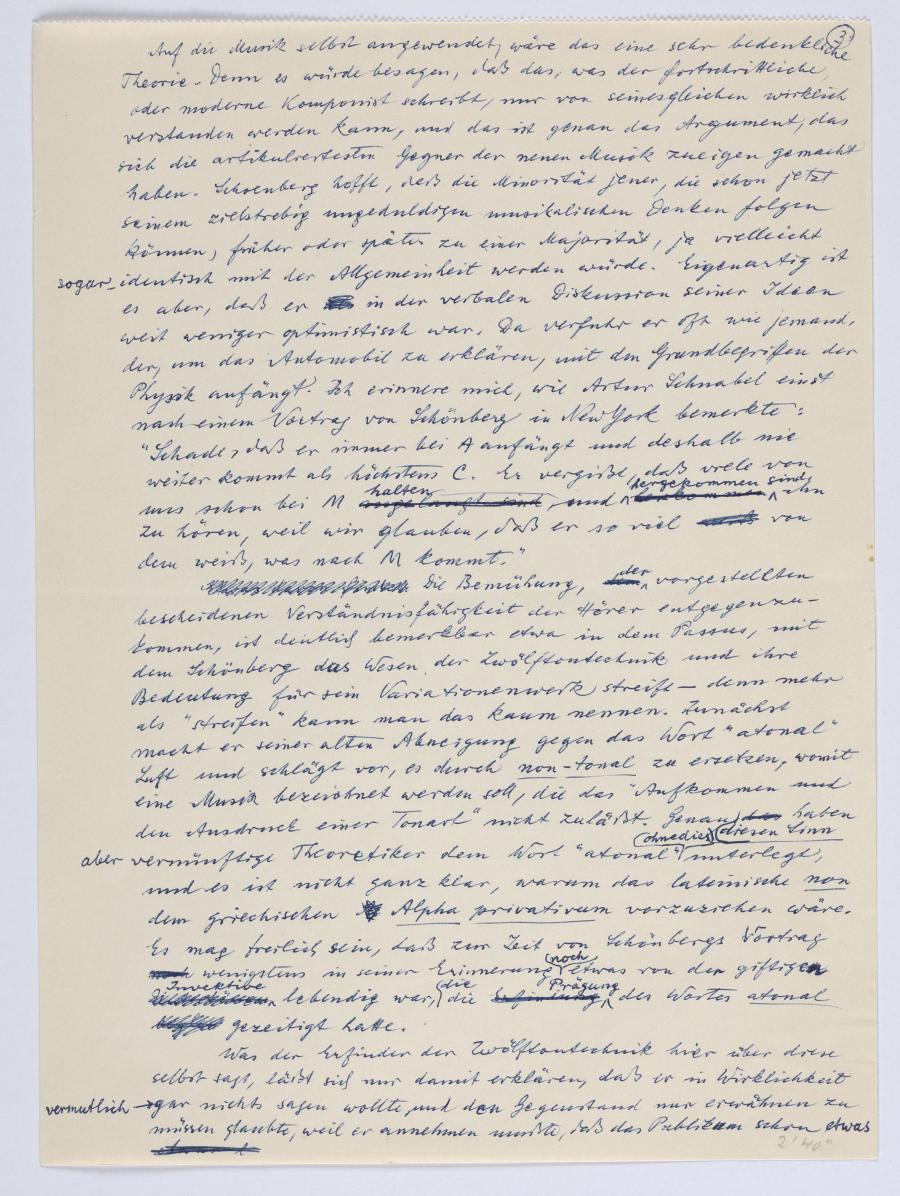 3
Auf die Musik selbst angewendet, wäre das eine sehr bedenkliche
Theorie. Denn es würde besagen, daß das, was der fortschrittliche,
oder moderne Komponist schreibt, nur von seinesgleichen wirklich
verstanden werden kann, und das ist genau das Argument, das
sich die artikuliertesten Gegner der neuen Musik zueigen gemacht
haben. Schoenberg hofft, daß die Minorität jener, die schon jetzt
seinem zielstrebig ungeduldigen musikalischen Denken folgen
können, früher oder später zu einer Majorität, ja vielleicht
sogar identisch mit der Allgemeinheit werden würde. Eigenartig ist
es aber, daß er in der verbalen Diskussion seiner Ideen
weit weniger optimistisch war. Da verfuhr er oft wie jemand,
der, um das Automobil zu erklären, mit den Grundbegriffen der
Physik anfängt. Ich erinnere mich, wie Artur Schnabel einst
nach einem Vortrag von Schönberg in New York bemerkte:
"Schade, daß er immer bei A anfängt und deshalb nie
weiter kommt als höchstens C. Er vergißt, daß viele von
uns schon bei M halten, und hergekommen sind, ihn
zu hören, weil wir glauben, daß er so viel von
dem weiß, was nach M kommt."
Die Bemühung, der vorgestellten
bescheidenen Verständnisfähigkeit der Hörer entgegenzu-
kommen, ist deutlich bemerkbar etwa in dem Passus, mit
dem Schönberg das Wesen der Zwölftontechnik und ihre
Bedeutung für sein Variationenwerk streift – denn mehr
als "streifen" kann man das kaum nennen. Zunächst
macht er seiner alten Abneigung gegen das Wort "atonal"
Luft und schlägt vor, es durch non-tonal zu ersetzen, womit
eine Musik bezeichnet werden soll, die das "Aufkommen und
den Ausdruck einer Tonart" nicht zuläßt. Genau diesen Sinn haben
aber vernünftige Theoretiker dem Wort "atonal" ohnedies unterlegt,
und es ist nicht ganz klar, warum das lateinische non
dem griechischen Alpha privativum vorzuziehen wäre.
Es mag freilich sein, daß zur Zeit von Schönbergs Vortrag
wenigstens in seiner Erinnerung noch etwas von der giftigen
Invektive lebendig war, die die Prägung des Wortes atonal
gezeitigt hatte.
Was der Erfinder der Zwölftontechnik hier über diese
selbst sagt, läßt sich nur damit erklären, daß er in Wirklichkeit
vermutlich gar nichts sagen wollte, und den Gegenstand nur erwähnen zu
müssen glaubte, weil er annehmen mußte, daß das Publikum schon etwas
2'40"